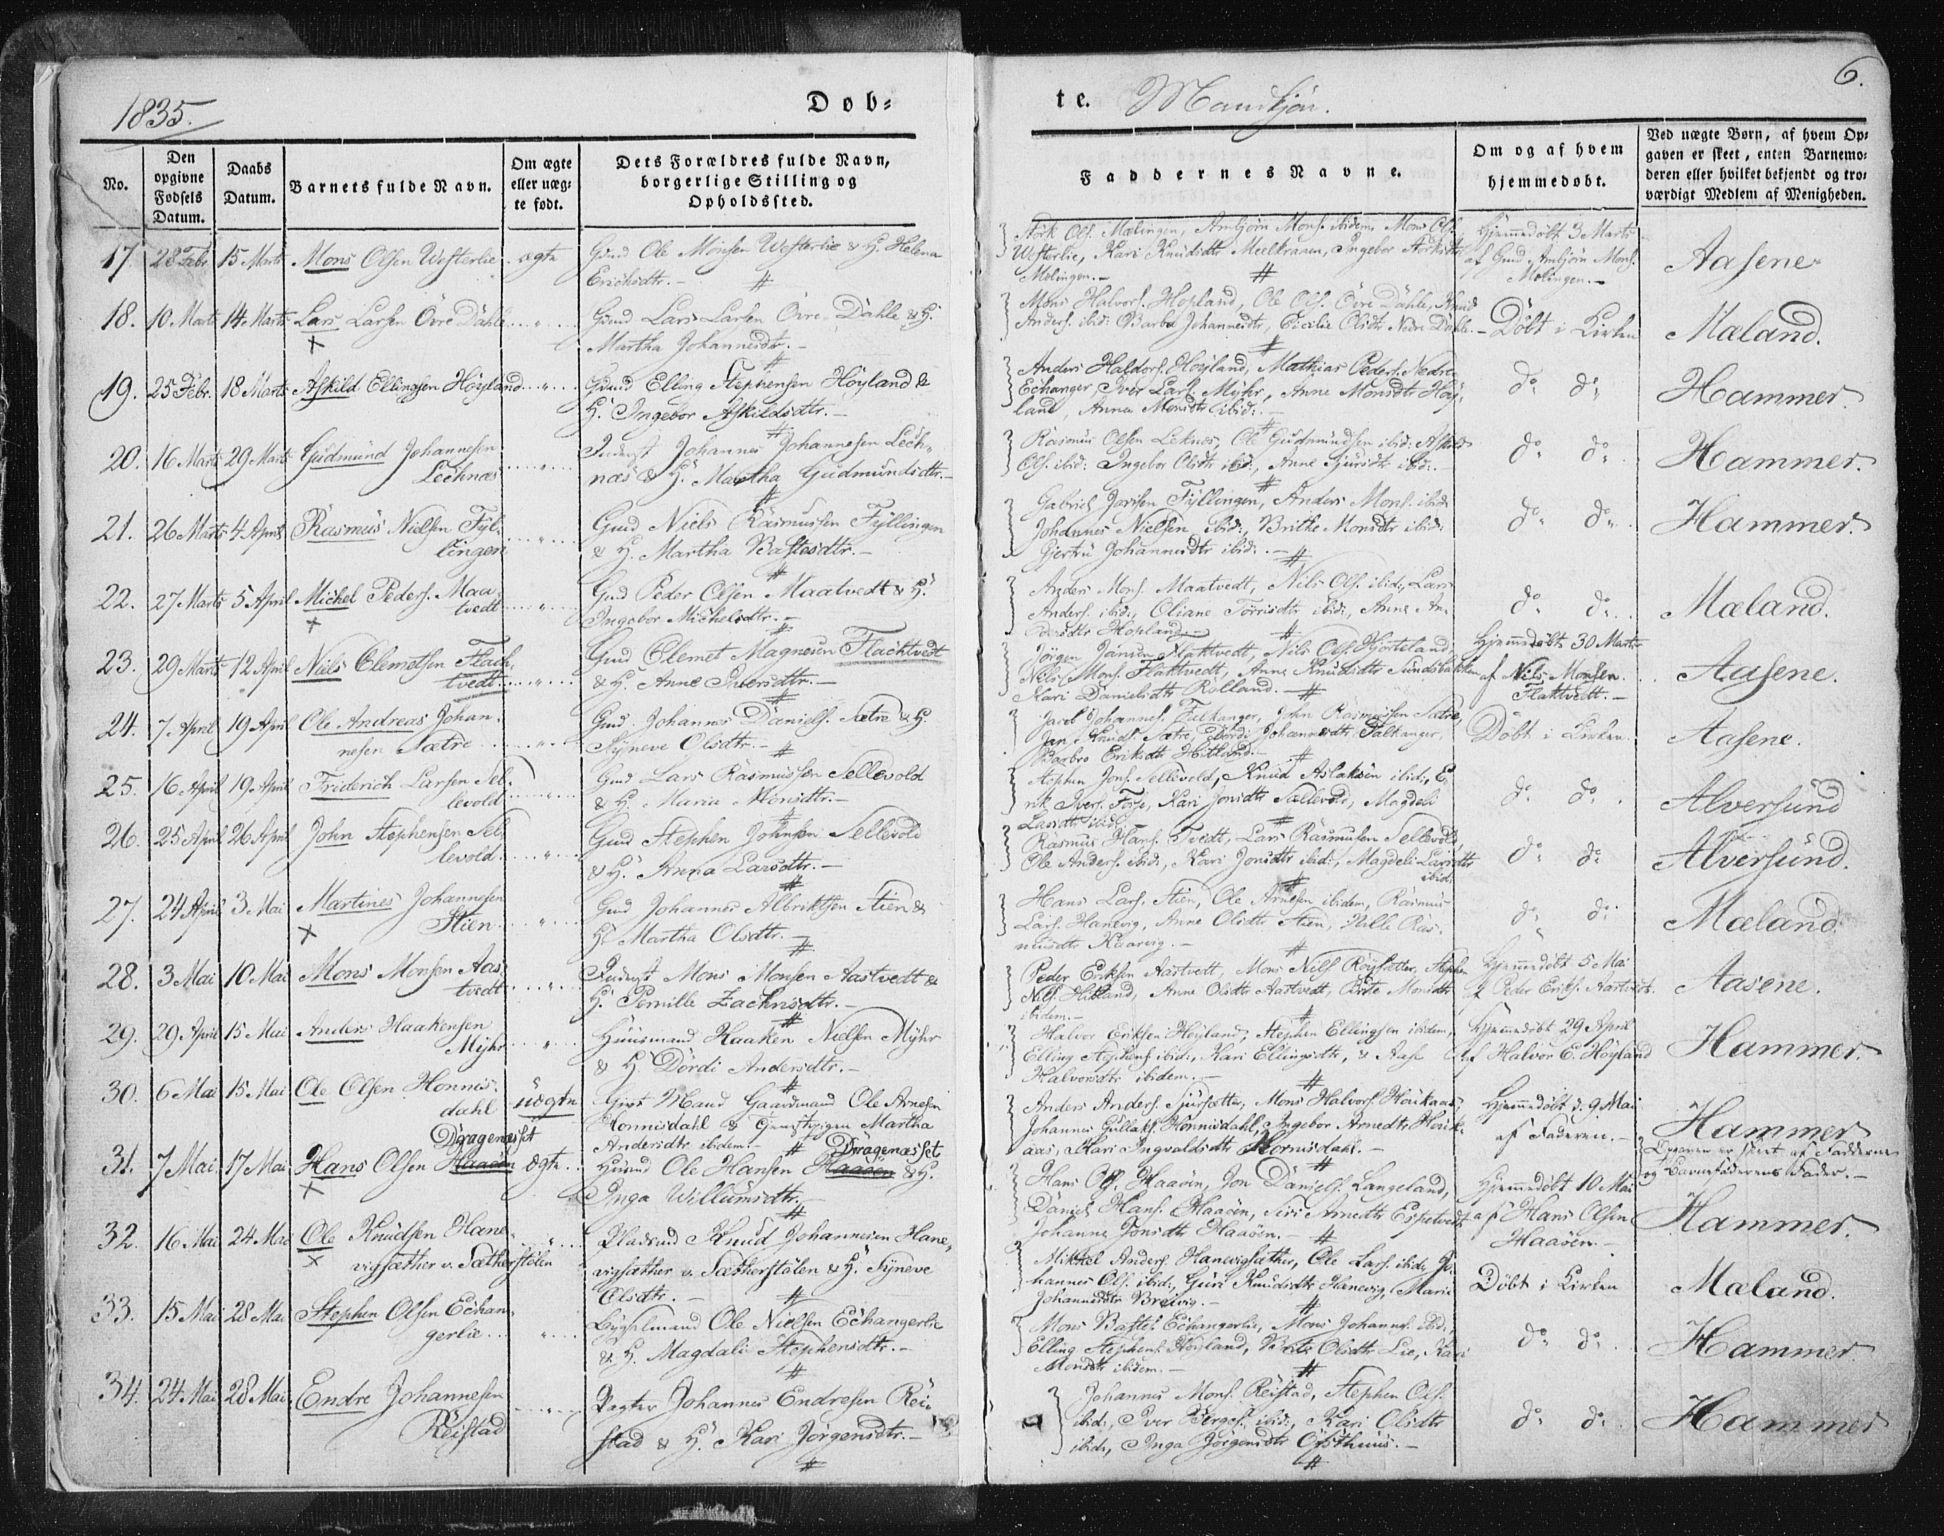 1835.
Døb=
te. Mandkjøn.
6.
No.
Den opgivne Fødsels Datum.
Daabs Datum.
Barnets fulde Navn.
Om ægte eller uægte født.
Dets Forældres fulde Navn, borgerlige Stilling og Opholdssted.
Faddernes Navne.
Om og af hvem hjemmedøbt.
Ved uægte Børn, af hvem Opgaven er skeet, enten Barnemoderen eller hvilket bekjendt og troværdigt Medlem af Menigheden.
17. 28 Febr. 15 Marts Mons Olsen Westerlie ægte
Gmd Ole Monsen Westerlie & H. Helena
Ericksdtr. -
Westerlie, Kari Knudsdtr
Molingen. -
Hjemmedøbt 3 Marts
af Gmd Ambjørn Mons.
Molingen. -
Aasene
18. 10 Marts 14 Marts Lars Larsen Övre Dahle
Gmd Lars Larsen Övre Dahle & H.
Martha Johannesdtr. -
Mons Halvors. Hopland, Ole Ols. Övre Dahle, Knud
Anders. ibid: Barbra Johannesdtr, Cicilie Olsdtr Nedre Dahle. -
Döbt i Kirken
Mæland.
19. 25 Febr. 18 Marts Askild Ellingsen Höyland
Gmd Elling Stephensen Höyland &
H. Ingebor Askildsdtr. -
Anders Haldors. Höyland, Mathias Peders. Nedre
Echanger, Iver Lars. Myhr, Anne Monsdtr Höy-
land, Anna Monsdtr ibid: -
do do
Hammer.
20. 16 Marts 29 Marts Gudmund Johannesen
Lechnæs
Johannes Johannesen Lech-
næs & H. Martha Gudmundsdtr. -
Rasmus Olsen Leknes, Ole Gudmundsen ibid: Askild
Ols. ibid: Ingebor Olsdtr ibid:, Anne Sjursdtr ibid: -
do do
Hammer.
21. 26 Marts 4 April Rasmus Nielsen Fyl-
lingen
Gmd Niels Rasmussen Fyllingen
& H. Martha Bastesdtr. -
Gabriel Jorisen Fyllingen, Anders Mons. ibid:
Johannes Nielsen ibid:, Brithe Monsdtr ibid:
Gjertru Johannesdtr ibid: -
do do
Hammer.
22. 27 Marts 5 April Michel Peders. Maa-
tvedt
Gmd Peder Olsen Maatvedt & H.
Ingebor Michelsdtr. -
Anders Mons. Maatvedt, Nils Ols. ibid:, Lars
Anders. ibid:, Oliane Torrisdtr ibid:, Anne An-
dersdtr Hopland -
do do
Mæland.
23. 29 Marts 12 April Niels Clemetsen Flach-
tvedt
Gmd Clemet Magnesen Flachtvedt
& H. Anne Iversdtr. -
Jörgen Jansen Flattvedt, Nils Ols. Hjorteland,
Nils Mons. Flattvedt, Anne Knudsdtr Sundsbakken
Kari Danielsdtr Rolland. -
Hjemmedöbt 30 Marts
af Nils Monsen
Flattvedt. -
Aasene.
24. 7 April 19 April Ole Andreas Johan-
nesen Sætre
Gmd. Johannes Daniels. Sætre & H.
Syneve Olsdtr. -
Jacob Johannes. Falkanger, John Rasmussen Sætre,
Jan Knuds. Sætre, Dordi Johannesdtr Falkanger,
Barbro Eriksdtr Hitland. -
Döbt i Kirken.
Aasene.
25. 16 April 19 April Friderich Larsen Sel-
levold
Gmd Lars Rasmussen Sellevold
& H. Maria Monsdtr. -
Stephen Jons. Sellevold, Knud Aslaksen ibid:, E-
rik Ivers. Fosse, Kari Jonsdtr Sællevold, Magdeli
Larsdtr ibid:
do do
Alversund
26. 25 April 26 April John Stephensen Sel-
levold
Gmd Stephen Johnsen Sellevold
& H. Anna Larsdtr. -
Rasmus Hans. Tvedt, Lars Rasmussen Sellevold,
Ole Anders. ibid:, Kari Jonsdtr ibid:, Magdeli Larsdtr
ibid:
do do
Alversund.
27. 24 April 3 Mai Martines Johannesen
Stien
Gmd Johannes Albriktsen Stien &
H. Martha Olsdtr. -
Hans Lars. Stien, Ole Arnesen ibidem, Rasmus
Lars. Hanevig, Anne Olsdtr Stien, Nille Ras-
musdtr Kaarvig. -
do do
Mæland.
28. 3 Mai 10 Mai Mons Monsen Aas-
tvedt
Mons Monsen Aastvedt &
H. Pernille Zachrisdtr. -
Peder Eriksen Aastvedt, Mons Nils. Röysætter, Stephen
Nils. Hitland, Anne Olsdtr Aastvedt, Birte Monsdtr
ibidem. -
Hjemmedöbt 5 Mai
af Peder Eriks. Aastvedt.
Aasene.
29. 29 April 15 Mai Anders Haakensen
Myhr
Huusmand Haaken Nielsen Myhr
& H. Dördi Andersdtr. -
Halvor Eriksen Höyland, Stephen Ellingsen ibidem,
Elling Stephens. ibid:, Kari Ellingsdtr, & Aase
Halvorsdtr ibidem. -
Hjemmedöbt 29 April
af Halvor E. Höyland
Hammer.
30. 6 Mai 15 Mai Ole Olsen Honnis-
dahl uægte
Gift Mand Gaardmand Ole Arnesen
Honnisdahl & Martha
Andersdtr ibidem. -
Anders Anders. Sjursætter, Mons Halvors. Houkaas,
Johannes Gullaks. Honnisdahl, Ingebor Arnesdtr Houk-
aas, Kari Ingvaldsdtr Hornisdahl. -
Hjemmedöbt d. 9 Mai
af Faderen. -
Hammer
Opgaven er skeet af Fadderne
og Barnefaderens Fader. -
31. 7 Mai 17 Mai Hans Olsen Haaøen Dragenæsset ægte
Huusmd Ole Hansen Haaøen Dragenæsset & H.
Inga Willumsdtr. -
Hans Ols. Haaöen, Jon Daniels. Langeland,
Daniel Hans. Haaöen, Siri Arnesdtr Espetvedt
Johanne Jonsdtr Haaöen. -
Hjemmedöbt 10 Mai
af Hans Olsen
Haaöen. -
Hammer.
32. 16 Mai 24 Mai Ole Knudsen Hane-
vigsæther v. Sætherstølen
Pladsmd Knud Johannesen Hane-
vigsæther v. Sætherstølen & H. Syneve
Olsdtr. -
Mikkel Anders. Hanevigsæther, Ole Lars. ibid:, Jo-
hannes Ols. ibid:, Guri Knudsdtr Hanevig, Marie
Johannesdtr Breivig. -
Döbt i Kirken
Mæland.
33. 15 Mai 28 Mai Stephen Olsen Echan-
gerlie
Bygselmand Ole Nielsen Echangerlie
& H. Magdali Stephensdtr. -
Mons Bastes. Echangerlie, Mons Johannes. ibid:,
Elling Stephens. Höyland, Brite Olsdtr Lie, Kari
Monsdtr ibidem. -
do do
Hammer.
34. 24 Mai 28 Mai Endre Johannesen
Reistad
Pagter Johannes Endresen Rei-
stad & H. Kari Jörgensdtr. -
Johannes Mons. Reistad, Stephen Ols.
ibid:, Iver Börges. ibid:, Kari Olsdtr
ibid:, Inga Jörgensdtr Össthuus. -
do do
Hammer